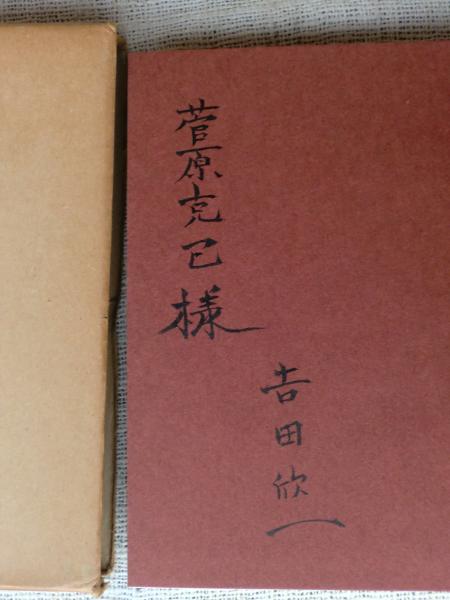 菅原克己様
吉田欣一